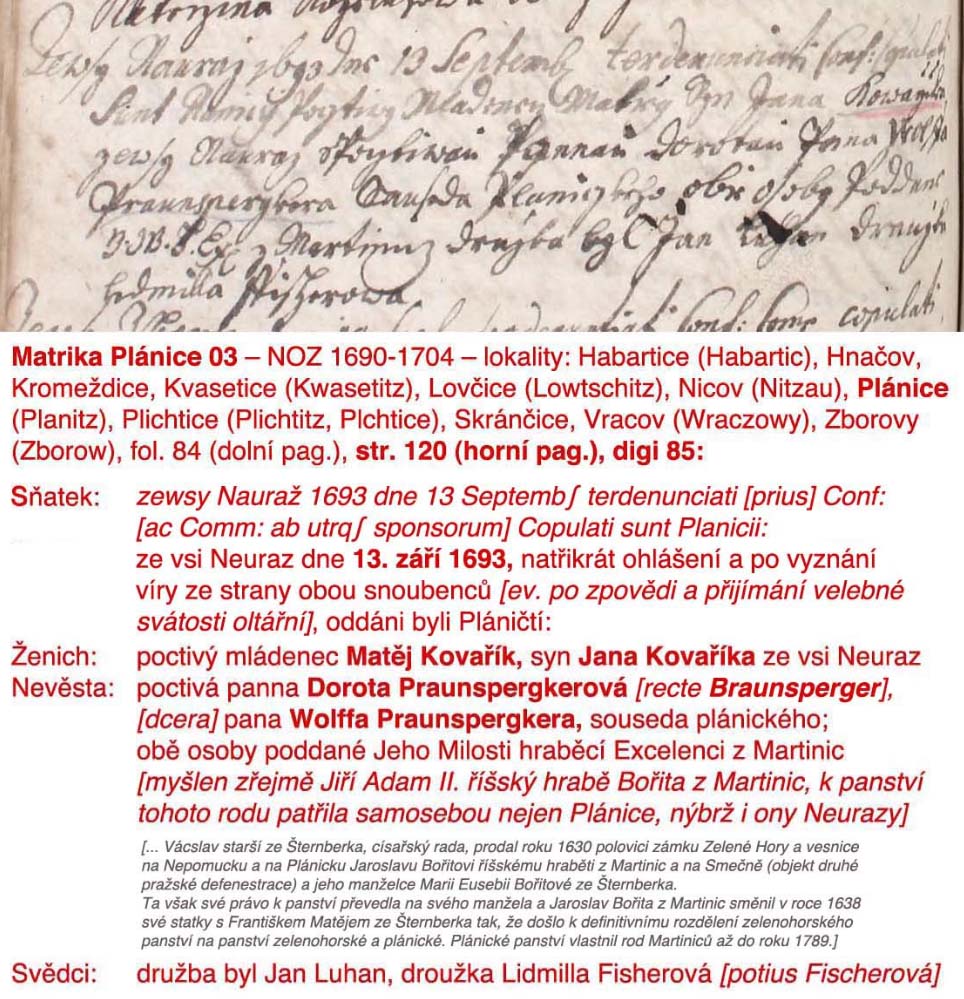 Zewsy Nauraz 1693 dne 13 Septemb terdenunciati Conf:
Sint Poctiwy Mladenecz Syn Jana
zewsy Nauraz Pannau Dorotau Pana
Praunspergkera Sauseda Planiczkeho obie osoby Poddane
z Martinicz družba byl Jan
Lidmilla Fiszerowa
copulati
Matrika Plánice 03 – NOZ 1690-1704 – lokality: Habartice (Habartic), Hnačov,
Kromeždice, Kvasetice (Kwasetitz), Lovčice (Lowtschitz), Nicov (Nitzau), Plánice
(Planitz), Plichtice (Plichtitz, Plchtice), Skránčice, Vracov (Wraczowy), Zborovy
(Zborow), fol. 84 (dolní pag.), str. 120 (horní pag.), digi 85:
Sňatek: zewsy Nauraž 1693 dne 13 Septemb∫ terdenunciati [prius] Conf:
[ac Comm: ab utrq∫ sponsorum] Copulati sunt Planicii:
ze vsi Neuraz dne 13. září 1693, natřikrát ohlášení a po vyznání
víry ze strany obou snoubenců [ev. po zpovědi a přijímání velebné
svátosti oltářní], oddáni byli Pláničtí:
Ženich: poctivý mládenec Matěj Kovařík, syn Jana Kovaříka ze vsi Neuraz
Nevěsta: poctivá panna Dorota Praunspergkerová [recte Braunsperger],
[dcera] pana Wolffa Praunspergkera, souseda plánického;
obě osoby poddané Jeho Milosti hraběcí Excelenci z Martinic
[myšlen zřejmě Jiří Adam II. říšský hrabě Bořita z Martinic, k panství
tohoto rodu patřila samosebou nejen Plánice, nýbrž i ony Neurazy]
[... Vácslav starší ze Šternberka, císařský rada, prodal roku 1630 polovici zámku Zelené Hory a vesnice
na Nepomucku a na Plánicku Jaroslavu Bořitovi říšskému hraběti z Martinic a na Smečně (objekt druhé
pražské defenestrace) a jeho manželce Marii Eusebii Bořitové ze Šternberka.
Ta však své právo k panství převedla na svého manžela a Jaroslav Bořita z Martinic směnil v roce 1638
své statky s Františkem Matějem ze Šternberka tak, že došlo k definitivnímu rozdělení zelenohorského
panství na panství zelenohorské a plánické. Plánické panství vlastnil rod Martiniců až do roku 1789.]
Svědci: družba byl Jan Luhan, droužka Lidmilla Fisherová [potius Fischerová]